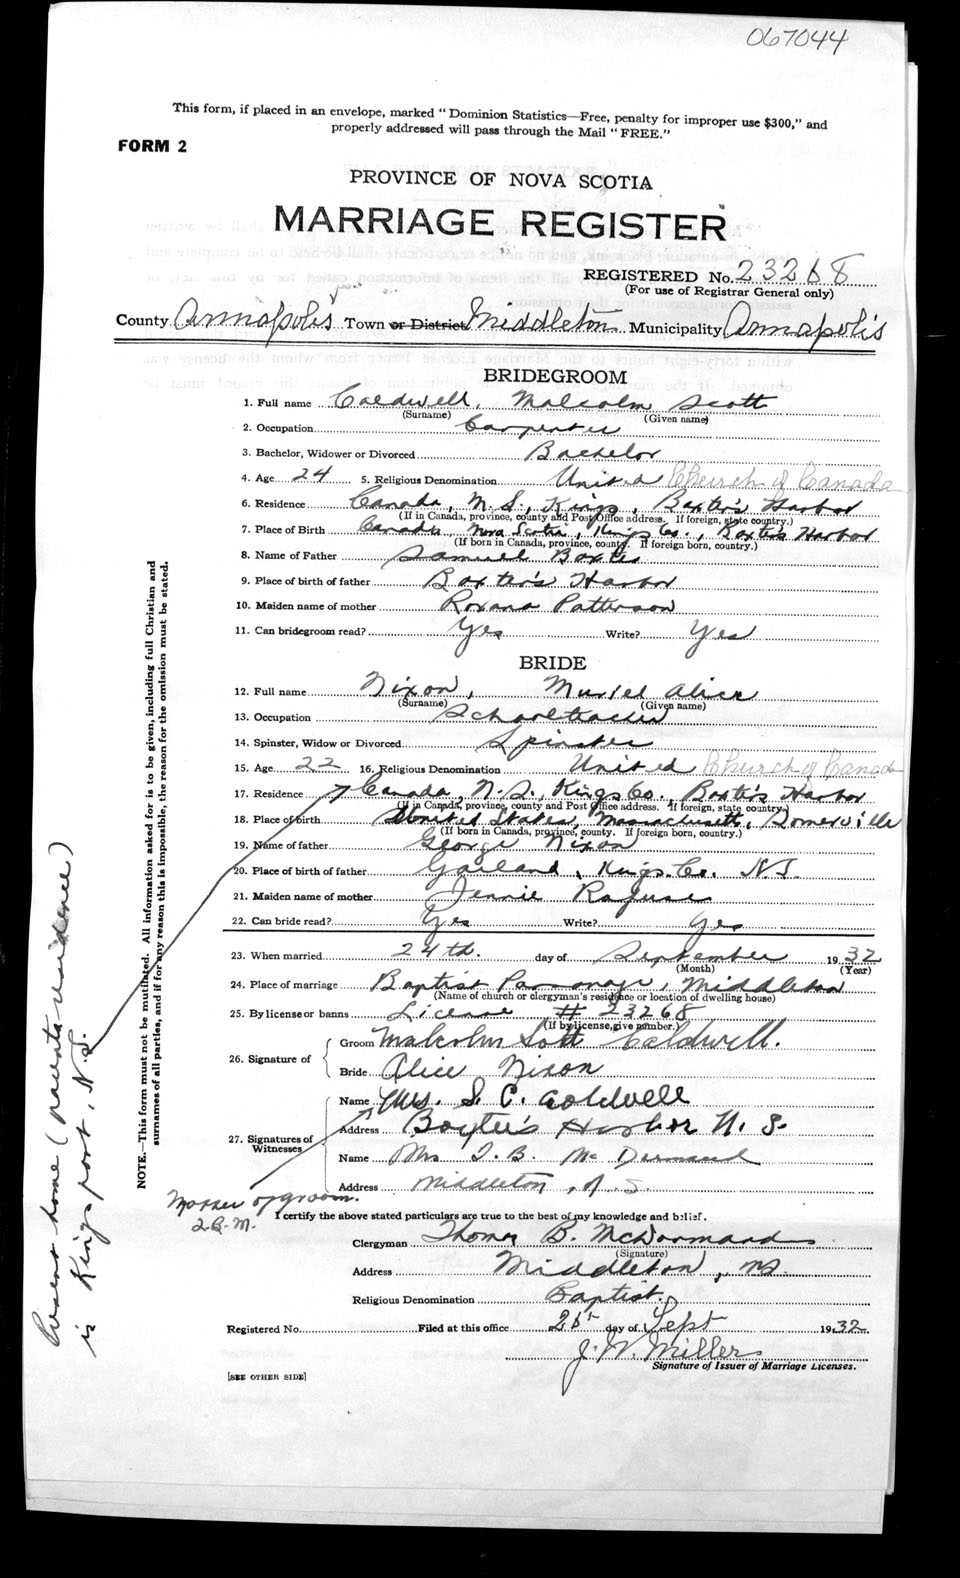 067044
This form, if placed in an envelope, marked "Dominion Statistics—Free, penalty for improper use $300," and
properly addressed will pass through the Mail "FREE."
FORM 2
PROVINCE OF NOVA SCOTIA
MARRIAGE REGISTER
REGISTERED No. 23268
(For use of Registrar General only)
County Annapolis Town or District Middleton Municipality Annapolis
BRIDEGROOM
1. Full name Caldwell, Malcolm Scott
(Surname) (Given name)
2. Occupation Carpenter
3. Bachelor, Widower or Divorced Bachelor
4. Age 24 5. Religious Denomination United Church of Canada
6. Residence Canada, N.S., Kings, Baxter's Harbor
(If in Canada, province, county and Post Office address. If foreign, state country.)
7. Place of Birth Canada, Nova Scotia, Kings Co., Baxter's Harbor
(If born in Canada, province, county. If foreign born, country.)
8. Name of Father Samuel Baxter
9. Place of birth of father Baxter's Harbor
10. Maiden name of mother Roxana Patterson
11. Can bridegroom read? Yes Write? Yes
BRIDE
12. Full name Nixon, Muriel Alice
(Surname) (Given name)
13. Occupation Schoolteacher
14. Spinster, Widow or Divorced Spinster
15. Age 22 16. Religious Denomination United Church of Canada
17. Residence Canada, N.S., Kings Co. Baxter's Harbor
(If in Canada, province, county and Post Office address. If foreign, state country.)
18. Place of birth United States, Massachusetts, Somerville
(If born in Canada, province, county. If foreign born, country.)
19. Name of father George Nixon
20. Place of birth of father Garland, Kings Co. N.S.
21. Maiden name of mother Jennie Rafuse
22. Can bride read? Yes Write? Yes
23. When married 24th. day of September 1932
(Month) (Year)
24. Place of marriage Baptist Parsonage, Middleton
(Name of church or clergyman's residence or location of dwelling house)
25. By license or banns License # 23268
(If by license, give number.)
26. Signature of
Groom Malcolm Scott Caldwell.
Bride Alice Nixon
27. Signatures of Witnesses
Name Mrs. S. C. Coldwell
Address Baxter's Harbor N. S.
Name Mrs T. B. McDormand
Address Middleton, N.S.
Mother of groom.
T.B.M.
I certify the above stated particulars are true to the best of my knowledge and belief.
Clergyman Thomas B. McDormand
(Signature)
Address Middleton, NS.
Religious Denomination Baptist.
Registered No. Filed at this office 26th day of Sept 1932
J. W. Miller
Signature of Issuer of Marriage Licenses.
[SEE OTHER SIDE]
NOTE.—This form must not be mutilated. All information asked for is to be given, including full Christian and
surnames of all parties, and if for any reason this is impossible, the reason for the omission must be stated.
Present home (parents residence)
is Kingsport, N.S.